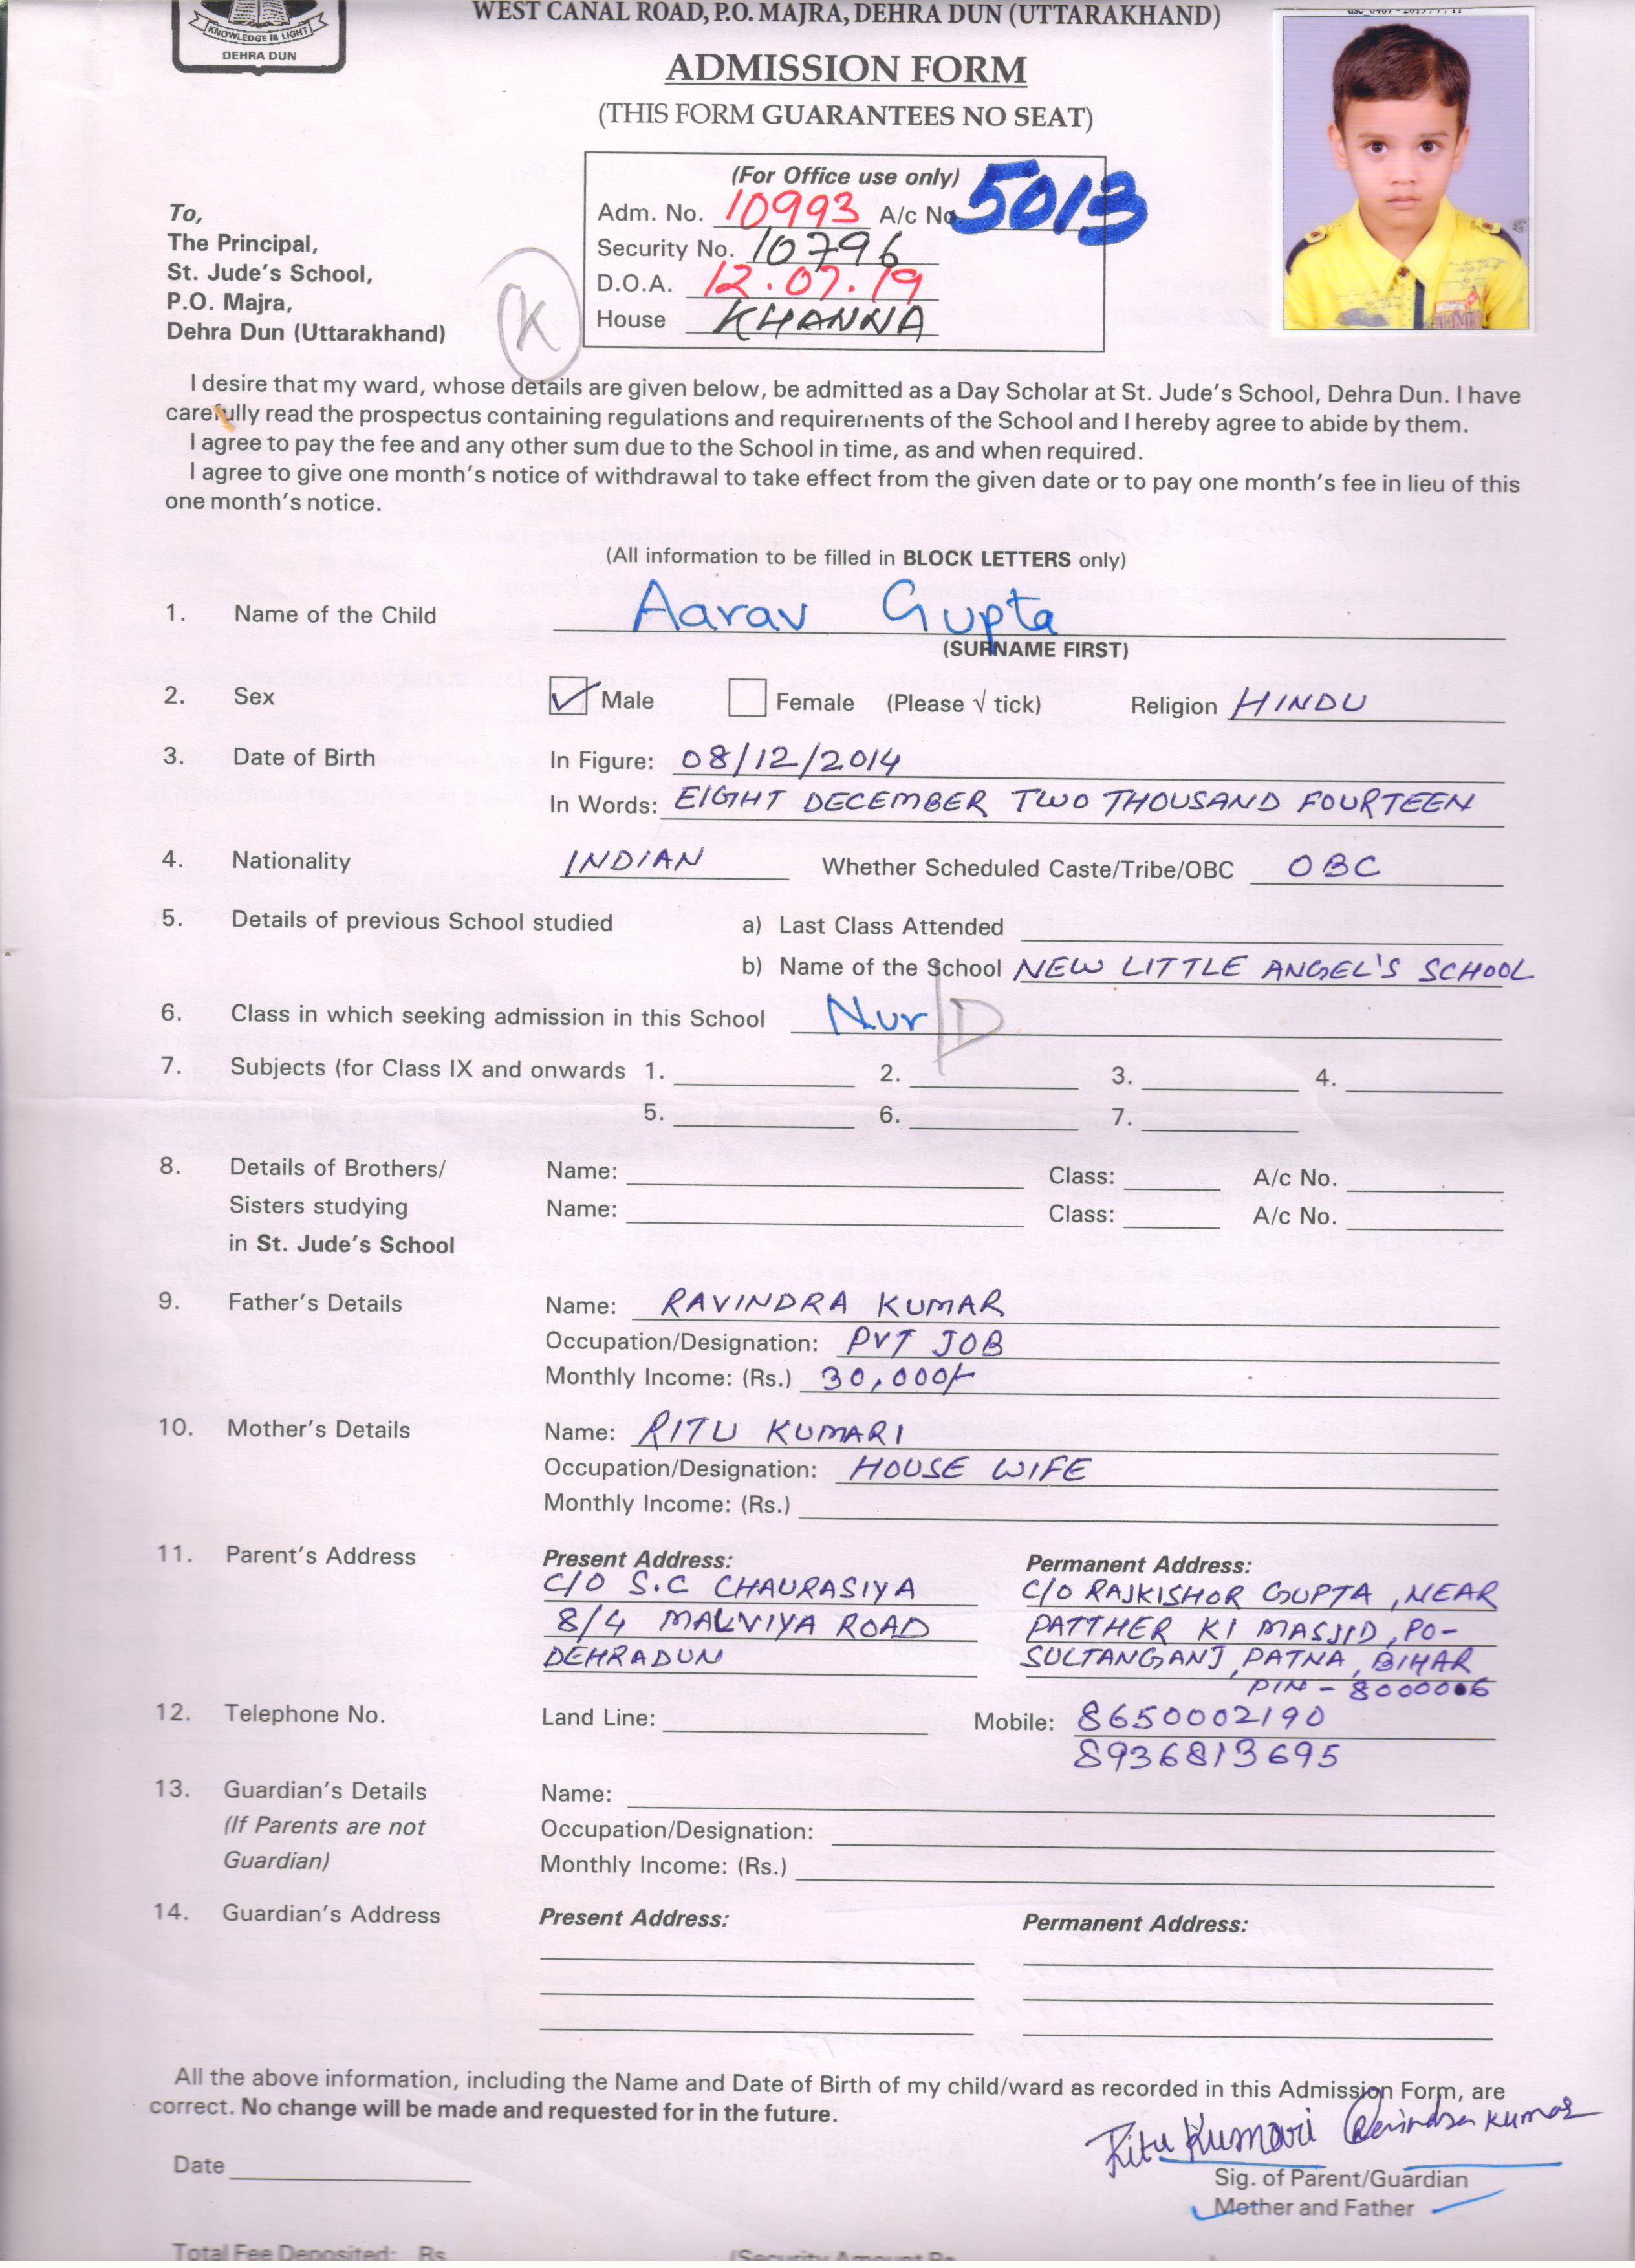 WEST CANAL ROAD, P.O. MAJRA, DEHRA DUN (UTTARAKHAND)
KNOWLEDGE IS LIGHT
DEHRA DUN
ADMISSION FORM
(THIS FORM GUARANTEES NO SEAT)
(For Office use only)
Adm. No. 10993 A/c No. 5013
Security No. 10796
D.O.A. 12.07.19
House KHANNA
K
To,
The Principal,
St. Jude's School,
P.O. Majra,
Dehra Dun (Uttarakhand)
I desire that my ward, whose details are given below, be admitted as a Day Scholar at St. Jude's School, Dehra Dun. I have
carefully read the prospectus containing regulations and requirements of the School and I hereby agree to abide by them.
I agree to pay the fee and any other sum due to the School in time, as and when required.
I agree to give one month's notice of withdrawal to take effect from the given date or to pay one month's fee in lieu of this
one month's notice.
(All information to be filled in BLOCK LETTERS only)
1. Name of the Child Aarav Gupta
(SURNAME FIRST)
2. Sex Male Female (Please √ tick) Religion HINDU
3. Date of Birth In Figure: 08/12/2014
In Words: EIGHT DECEMBER TWO THOUSAND FOURTEEN
4. Nationality INDIAN Whether Scheduled Caste/Tribe/OBC OBC
5. Details of previous School studied a) Last Class Attended
b) Name of the School NEW LITTLE ANGEL'S SCHOOL
6. Class in which seeking admission in this School Nur D
7. Subjects (for Class IX and onwards 1. 2. 3. 4.
5. 6. 7.
8. Details of Brothers/ Name: Class: A/c No.
Sisters studying Name: Class: A/c No.
in St. Jude's School
9. Father's Details Name: RAVINDRA KUMAR
Occupation/Designation: PVT JOB
Monthly Income: (Rs.) 30,000/-
10. Mother's Details Name: RITU KUMARI
Occupation/Designation: HOUSE WIFE
Monthly Income: (Rs.)
11. Parent's Address Present Address: Permanent Address:
C/O S.C CHAURASIYA C/O RAJKISHOR GUPTA, NEAR
8/4 MALVIYA ROAD PATTHER KI MASJID, PO-
DEHRADUN SULTANGANJ, PATNA, BIHAR
PIN - 800006
12. Telephone No. Land Line: Mobile: 8650002190
8936813695
13. Guardian's Details Name:
(If Parents are not Occupation/Designation:
Guardian) Monthly Income: (Rs.)
14. Guardian's Address Present Address: Permanent Address:
All the above information, including the Name and Date of Birth of my child/ward as recorded in this Admission Form, are
correct. No change will be made and requested for in the future.
Ritu Kumari Ravindra Kumar
Date
Sig. of Parent/Guardian
Mother and Father
Total Fee Deposited: Rs. (Security Amount Rs.